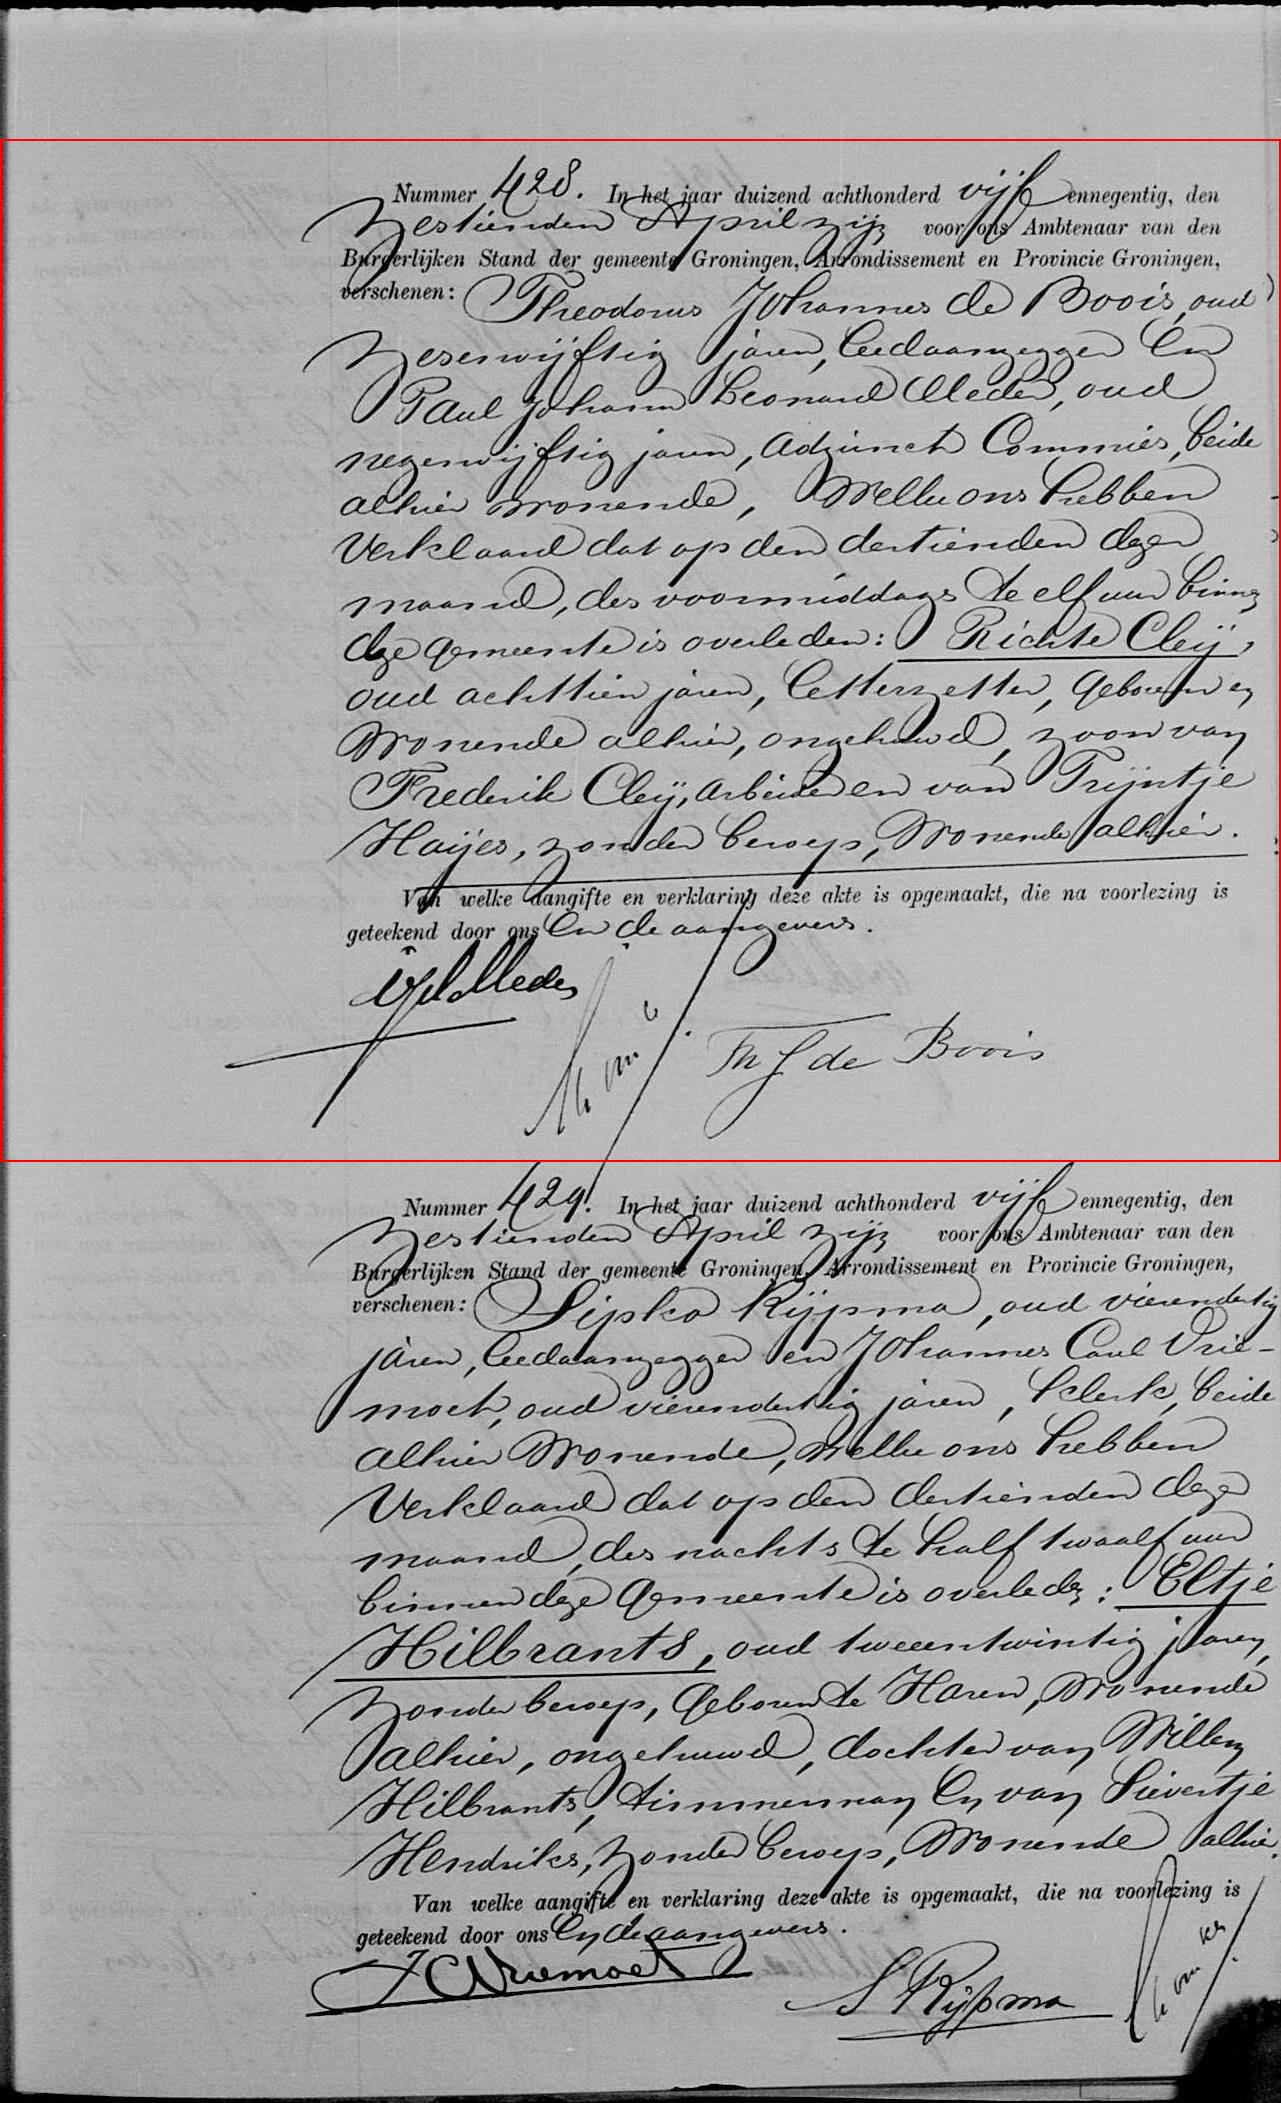 Nummer 428. In het jaar duizend achthonderd vijf ennegentig, den
zestienden April zijn voor ons Ambtenaar van den
Burgerlijken Stand der gemeente Groningen, Arrondissement en Provincie Groningen,
verschenen: Theodorus Johannes de Boois, oud
zesenvijftig jaren, leedaanzegger en
Paul Johann Leonard Meder, oud
negenvijftig jaren, adjunct Commies, beide
alhier wonende, Welke ons hebben
Verklaard dat op den dertienden dezer
maand, des voormiddags te elf uur binnen
deze gemeente is overleden: Richte Cleij,
oud achttien jaren, letterzetter, geboren en
Wonende alhier, ongehuwd, zoon van
Frederik Cleij, arbeider en van Trijntje
Haijes, zonder beroep, Wonende alhier.
Van welke aangifte en verklaring deze akte is opgemaakt, die na voorlezing is
geteekend door ons en de aangevers.
Meder
Th J de Boois
Nummer 429. In het jaar duizend achthonderd vijf ennegentig, den
zestienden April zijn voor ons Ambtenaar van den
Burgerlijken Stand der gemeente Groningen, Arrondissement en Provincie Groningen,
verschenen: Sipko Rijpma, oud vierendertig
jaren, leedaanzegger en Johannes Carel Vrie-
moet, oud vierendertig jaren, klerk, beide
alhier Wonende, welke ons hebben
Verklaard dat op den dertienden dezer
maand, des nachts te half twaalf uur
binnen deze gemeente is overleden: Eltje
Hilbrants, oud tweeentwintig jaren,
zonder beroep, geboren te Haren, Wonende
alhier, ongehuwd, dochter van Willem
Hilbrants, timmerman en van Sievertje
Hendriks, zonder beroep, Wonende alhier.
Van welke aangifte en verklaring deze akte is opgemaakt, die na voorlezing is
geteekend door ons en de aangevers.
J C Vriemoet
S Rijpma